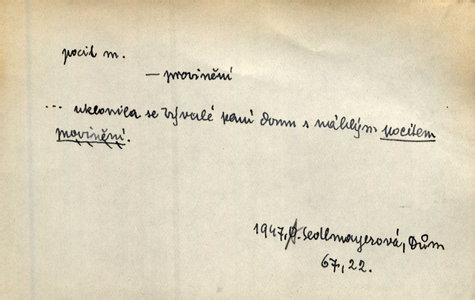 pocit m.
— provinění
... uklonila se bývalé paní domu s náhlým pocitem
provinění.
1947, J. Sedlmayerová, Dům
67, 22.